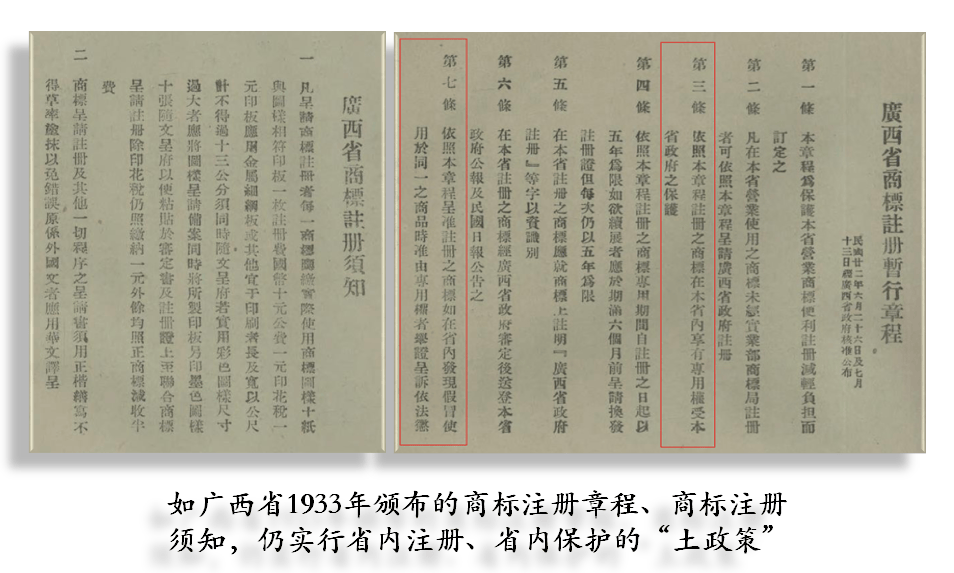 廣西省商標註册暫行章程
民國廿二年六月二十六日及七月
十三日經廣西省政府核准公布
第一條 本章程爲保護本省營業商標便利註册減輕負担而
訂定之
第二條 凡在本省營業使用之商標未經實業部商標局註册
者可依照本章程呈請廣西省政府註册
第三條 依照本章程註册之商標在本省內享有專用權受本
省政府之保護
第四條 依照本章程註册之商標專用期間自註册之日起以
五年爲限如欲續展者應於期滿六個月前呈請換發
註册證但每次仍以五年爲限
第五條 在本省註册之商標應就商標上註明『廣西省政府
註册』等字以資識別
第六條 在本省註册之商標經廣西省政府審定後送登本省
政府公報及民國日報公告之
第七條 依照本章程呈准註册之商標如在省內發現假冒使
用於同一之商品時准由專用權者舉證呈訴依法懲
廣西省商標註册須知
一 凡呈請商標註册者每一商標應繪實際使用商標圖樣十紙
與圖樣相符印板一枚註册費國幣十元公費一元印花稅一
元印板應用金屬細綱板或其他宜于印刷者長及寬以公尺
計不得過十三公分須同時隨文呈府若實用彩色圖樣尺寸
過大者應將圖樣呈請備案同時將所製印板另印墨色圖樣
十張隨文呈府以便粘貼於審定書及註册證上至聯合商標
呈請註册除印花稅仍照繳納一元外餘均照正商標減收半
費
二 商標呈請註册及其他一切程序之呈請書須用正楷繕寫不
得草率塗抹以免錯誤原係外國文者應用華文譯呈
如广西省1933年颁布的商标注册章程、商标注册
须知，仍实行省内注册、省内保护的“土政策”